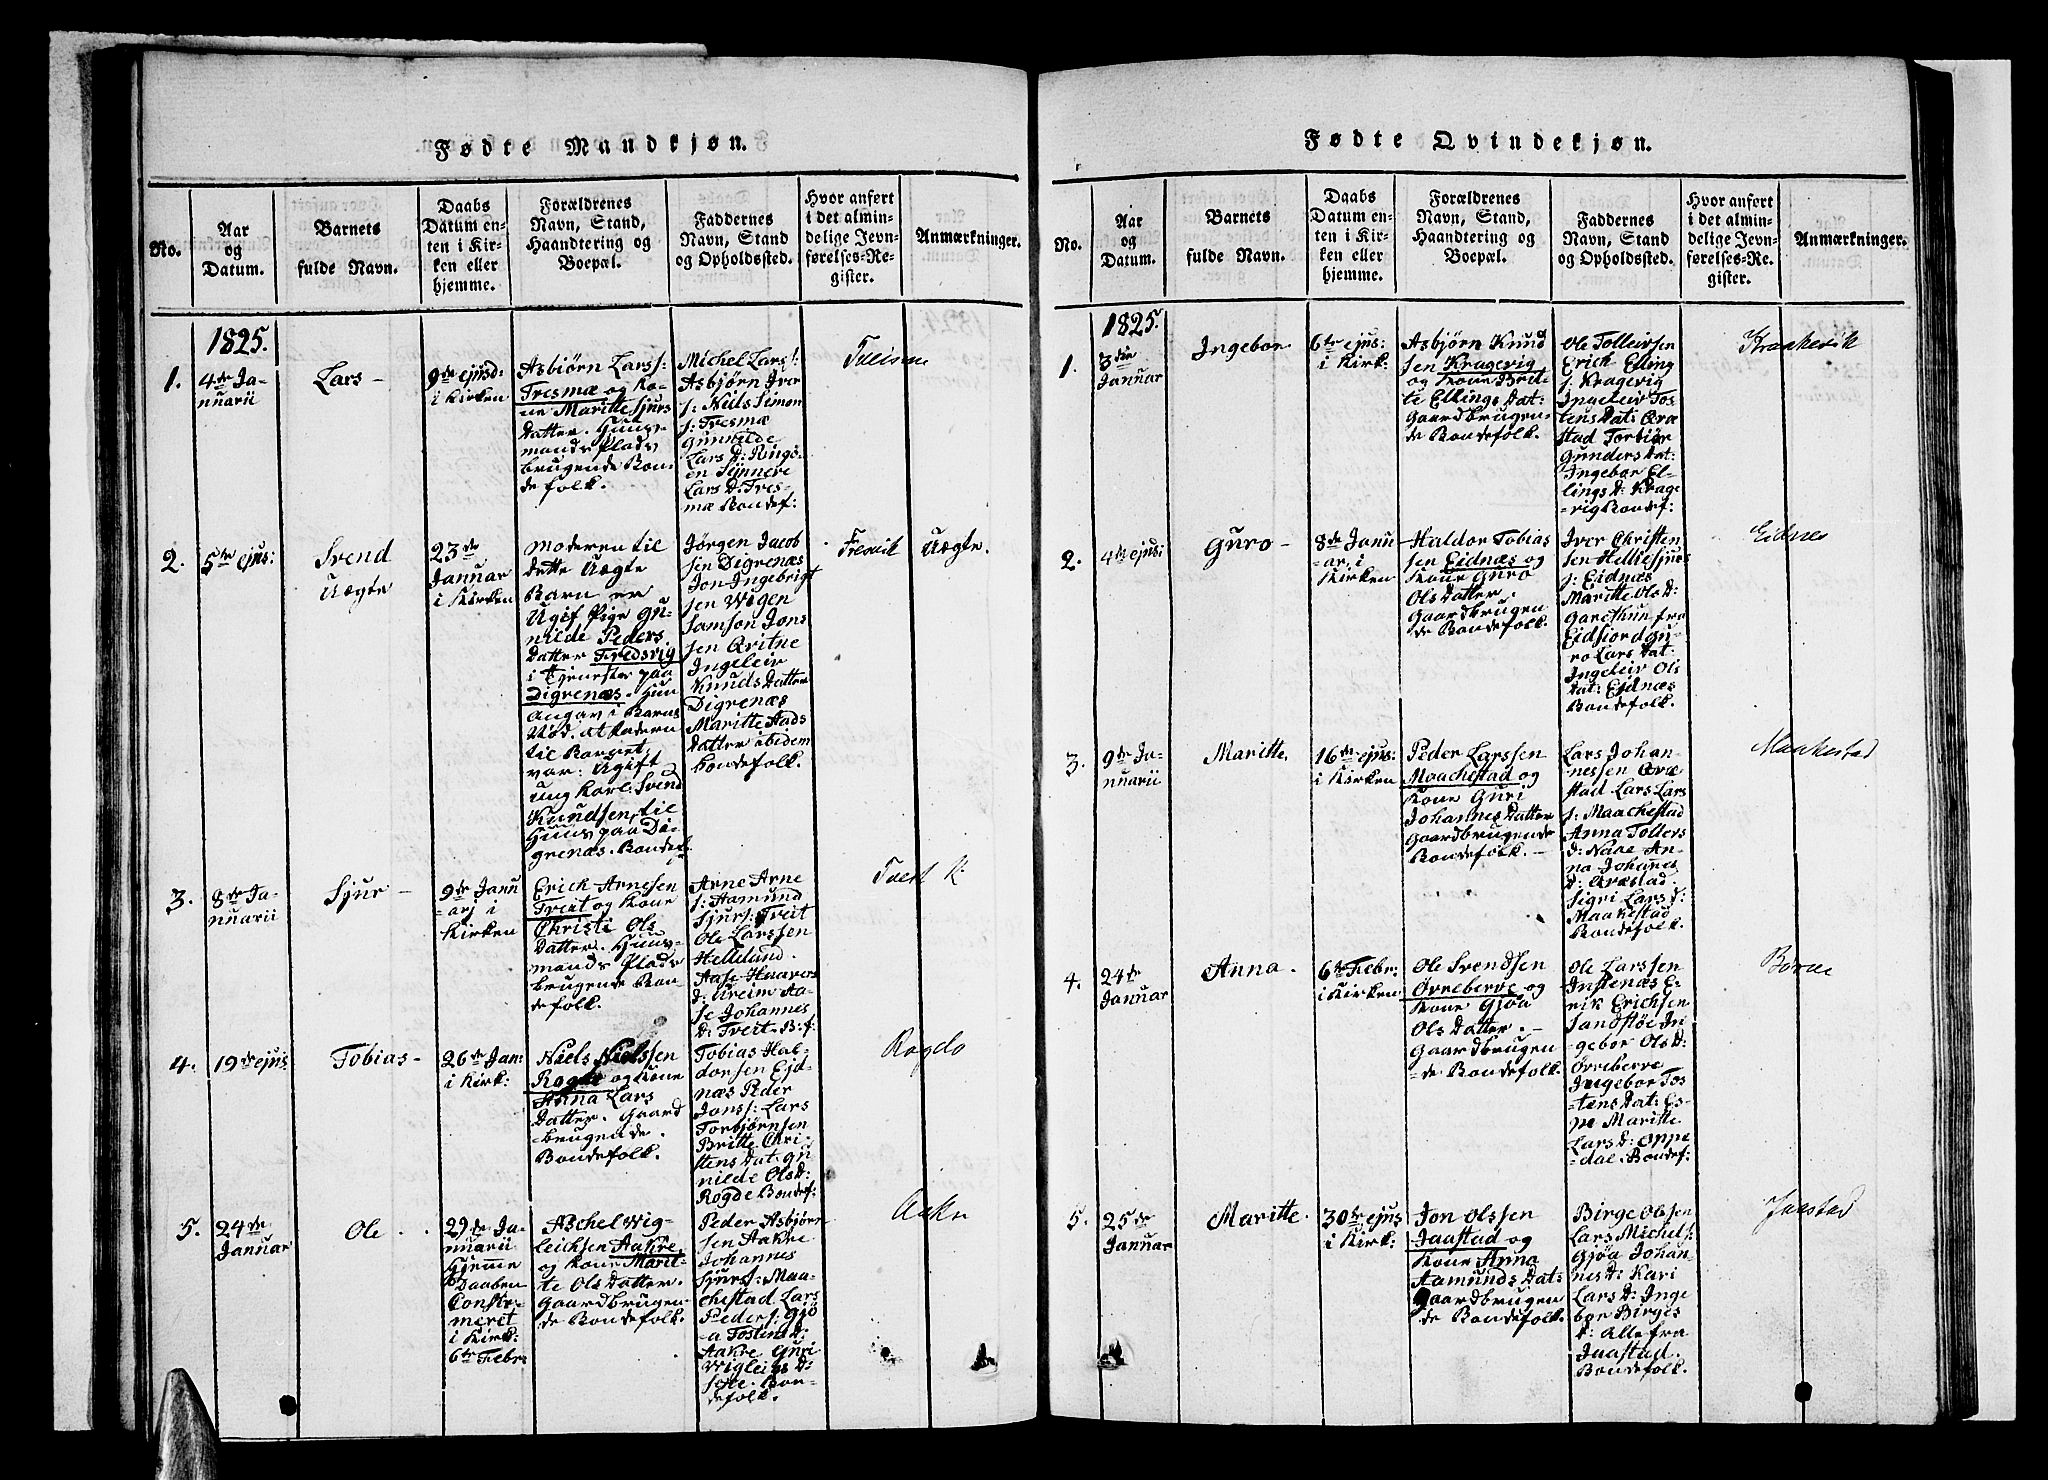 Fødte Mandkjøn.
No.
Aar
og
Datum.
Barnets
fulde Navn.
Daabs
Datum en-
ten i Kir-
ken eller
hjemme.
Forældrenes
Navn, Stand,
Haandtering og
Boepæl.
Faddernes
Navn, Stand
og Opholdssted.
Hvor anført
i det almin-
delige Jevn-
førelses-Re-
gister.
Anmærkninger.
1825.
1.
4de Ja-
nuarii
Lars -
9de ejusd:
i Kirken
Asbiörn Larss:
Tresmæ og Ko-
ne Maritte Sjurs
Datter. Huus-
mands Plads
brugende Bon-
defolk.
Michel Lars f:
Asbjørn Iver
f: Niels Simon
f: Tresmæ
Gunnilde
Lars D: Rings-
en Synneve
Lars D: Tres-
mæ Bondef:
2.
5te ejus:
Svend
Uægte
23de
Januar
i Kirken
Moderen til
dette Uægte
Barn er
Ugif Pige Gu-
nilde Peders
Datter Tredsvig
i Tjeneste paa
Digrenæs. Hun
angav i Barns
Nød. at Faderen
til Barnet,
var: Ugift
ung Karl: Svend
Knudsen, til
Huus paa Di-
grenæs. Bondef:
Jørgen Jacob
sen Digrenæs
Jon Ingebrigt
sen Wigen
Samson Jons
sen Qvitne
Ingeleiv
Knuds Datter
Digrenæs
Maritte Aads
Datter ibidem
bondefolk.
Uægte.
3.
8de Ja-
nuarii
Sjur -
9de Janu
=arj i
Kirken
Erick Arnesen
Treit og Kone
Christi Ols
Datter. Huus-
mands Plads
brugende Bon
defolk.
Arne Arne
f: Aamund
Sjurs f: Treit
Ole Larssen
Helleland.
Aase Haavos
d: Ureim Aa-
se Johannes
D: Treit. B: f:
4.
19de ejus
Tobias -
26de Jan:
i Kirk:
Niels Nielssen
Rogde og Kone
Anna Lars
Datter. Gaard
=brugende.
Bondefolk.
Tobias Hal-
dorsen Ejd-
næs Peder
Jonss: Lars
Torbjørnsen
Britte Chri-
stens Dat: Gu
nilde Ols D:
Rogde Bondef:
Rogdo
5.
24de
Januar
Ole
29de Ja-
nuarii
Hjemme
Daaben
Confir-
meret
i Kirk:
6te Febr:
Achel Wig-
leichsen Aakre
og Kone Marit-
te Ols Datter.
Gaardbrugen-
de Bondefolk.
Peder Asbjørn
sen Aakre
Johannes
Sjurs f: Maa-
chestad Lars
Peders f: Gjö
=a Tosten D:
Aakre Guri
Wigleigs D:
Bon-
defolk.
Fødte Qvindekjøn.
No.
Aar
og
Datum.
Barnets
fulde Navn.
Daabs
Datum en-
ten i Kir-
ken eller
hjemme.
Forældrenes
Navn, Stand,
Haandtering og
Boepæl.
Faddernes
Navn, Stand
og Opholdssted.
Hvor anført
i det almin-
delige Jevn-
førelses-Re-
gister.
Anmærkninger.
1825.
1.
3die
Januar
Ingebor
6te ejus:
i Kirk:
Asbjørn Knud
sen Kragevig
og Kone Brit-
te Ellings Dat:
Gaardbrugen-
de Bondefolk.
Ole Tolleivsen
Erich Elling
f: Kragevig
Ingeleiv Tos-
tens Dat: Qvæ
stad Torbiör
Gunders Dat:
Ingebor El-
lings D: Krage
=vig Bondef:
Krakevik
2.
4de ejus:
Guro -
8de Janu
=ar, i
Kirken
Haldor Tobias
sen Eidnæs og
Kone Guro
Ols Datter
Gaardbrugen
de Bondefolk.
Iver Christen
sen Helle Sjurs
f: Eidnæs
Maritte Ols D:
Garethun fra
Eidfiord Gu-
ro Lars Dat:
Ingeleiv Ols
Dat: Ejdnæs
Bondefolk.
Eidnes
3.
9de Ja-
nuarii
Maritte.
16de ejus:
i Kirken
Peder Larssen
Maachestad og
Kone Guri
Johannes Datter
Gaardbrugende
Bondefolk. -
Lars Johan-
nessen Qvæ
stad Lars Lars
f: Maachestad
Anna Tollers
d: Naae An-
na Johannes
d: Qvæstad
Sigri Lars D:
Maakestad
Bondefolk.
Maakestad
4.
24de
Januar
Anna.
6te Febr:
i Kirken
Ole Svendsen
Övreberve og
Kone Gjöa
Ols Datter. -
Gaardbrugen
=de Bondefolk.
Ole Larssen
Instenæs E-
rik Erichsen
Sandstöe In
gebor Ols D:
Övreberve
Ingebor Tos-
=tens Dat: Es-
pe Maritte
Lars D: Oppe
=dal. Bondef:
Börve
5.
25de
Januar
Maritte.
30te ejus
i Kirk:
Jon Olssen
Jaastad og
Kone Anna
Aamunds Dat:
Gaardbrugen
de Bondefolk.
Birge Olssen
Lars Michels f:
Gjöa Johan-
nes D: Kari
Lars D: Inge
bor Birges
D: Alle fra
Jaastad.
Bondefolk.
Jaastad